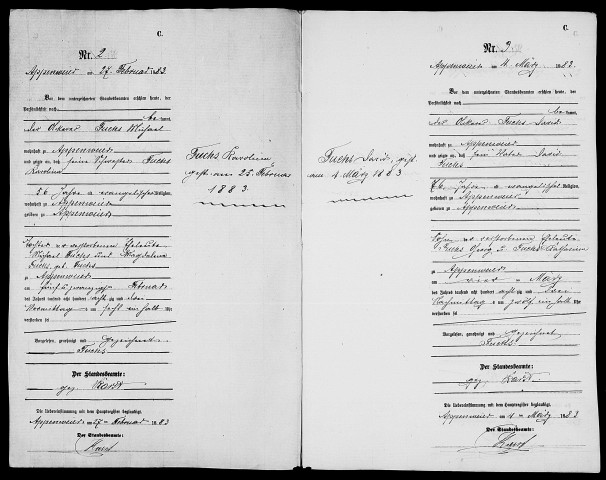 C.
Nr. 2
Appenweier am 27. Februar 1883.
Vor dem unterzeichneten Standesbeamten erschien heute, der
Persönlichkeit nach
be kannt,
der Michael Fuchs
wohnhaft zu Appenweier
und zeigte an, daß seine Schwester Fuchs
Karolina
56 Jahre a evangelischer Religion,
wohnhaft zu Appenweier
geboren zu Appenweier
Tochter verstorbenen Eheleute
Michael Fuchs und Magdalena
Fuchs, geb. Fuchs
zu Appenweier
am fünf u zwanzig Februar
des Jahres tausend acht hundert achtzig und drei
Vormittags um halb Uhr
verstorben sei
Vorgelesen, genehmigt und gezeichnet
Fuchs
Der Standesbeamte:
gez. Karst
Die Uebereinstimmung mit dem Hauptregister beglaubigt.
Appenweier am 27. Februar 1883
Der Standesbeamte:
Karst
Fuchs Karolina
gest. am 25. Februar
1883
Fuchs David, gest.
am 4. März 1883
C.
Nr. 3.
Appenweier am 4. März 1883.
Vor dem unterzeichneten Standesbeamten erschien heute, der
Persönlichkeit nach
be kannt,
der Fuchs David
wohnhaft zu Appenweier
und zeigte an, daß sein Vater David
Fuchs
Jahre a evangelischer Religion,
wohnhaft zu Appenweier
geboren zu Appenweier
Sohn verstorbenen Eheleute
Fuchs Georg u. Fuchs Katharina
zu Appenweier
am vier März
des Jahres tausend acht hundert achtzig und drei
Nachmittags um zwölf ein halb Uhr
verstorben sei
Vorgelesen, genehmigt und gezeichnet
Fuchs
Der Standesbeamte:
gez. Karst
Die Uebereinstimmung mit dem Hauptregister beglaubigt.
Appenweier am 4. März 1883
Der Standesbeamte:
Karst